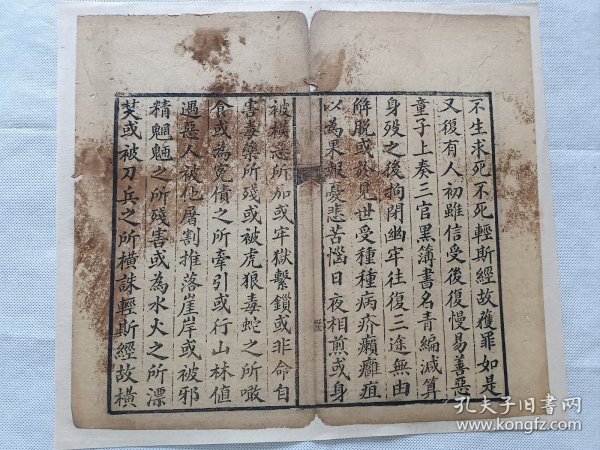 不生求死不死輕斯經故獲罪如是
又復有人初雖信受後復慢易善惡
童子上奏三官黑簿書名青編減算
身歿之後拘閉幽牢往復三途無由
解脫或於見世受種種病疥癩癰疽
以為果報憂悲苦惱日夜相煎或身
被橫惡所加或牢獄繫鎖或非命自
害毒藥所殘或被虎狼毒蛇之所噉
食或為冤債之所牽引或行山林值
遇惡人被他屠割推落崖岸或被邪
精魍魎之所殘害或為水火之所漂
焚或被刀兵之所橫誅輕斯經故橫
孔夫子旧书网
www.kongfz.com